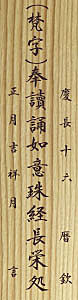 慶長十六 暦欽
(梵字)奉讀誦如意珠経長栄処
正月吉祥月 言